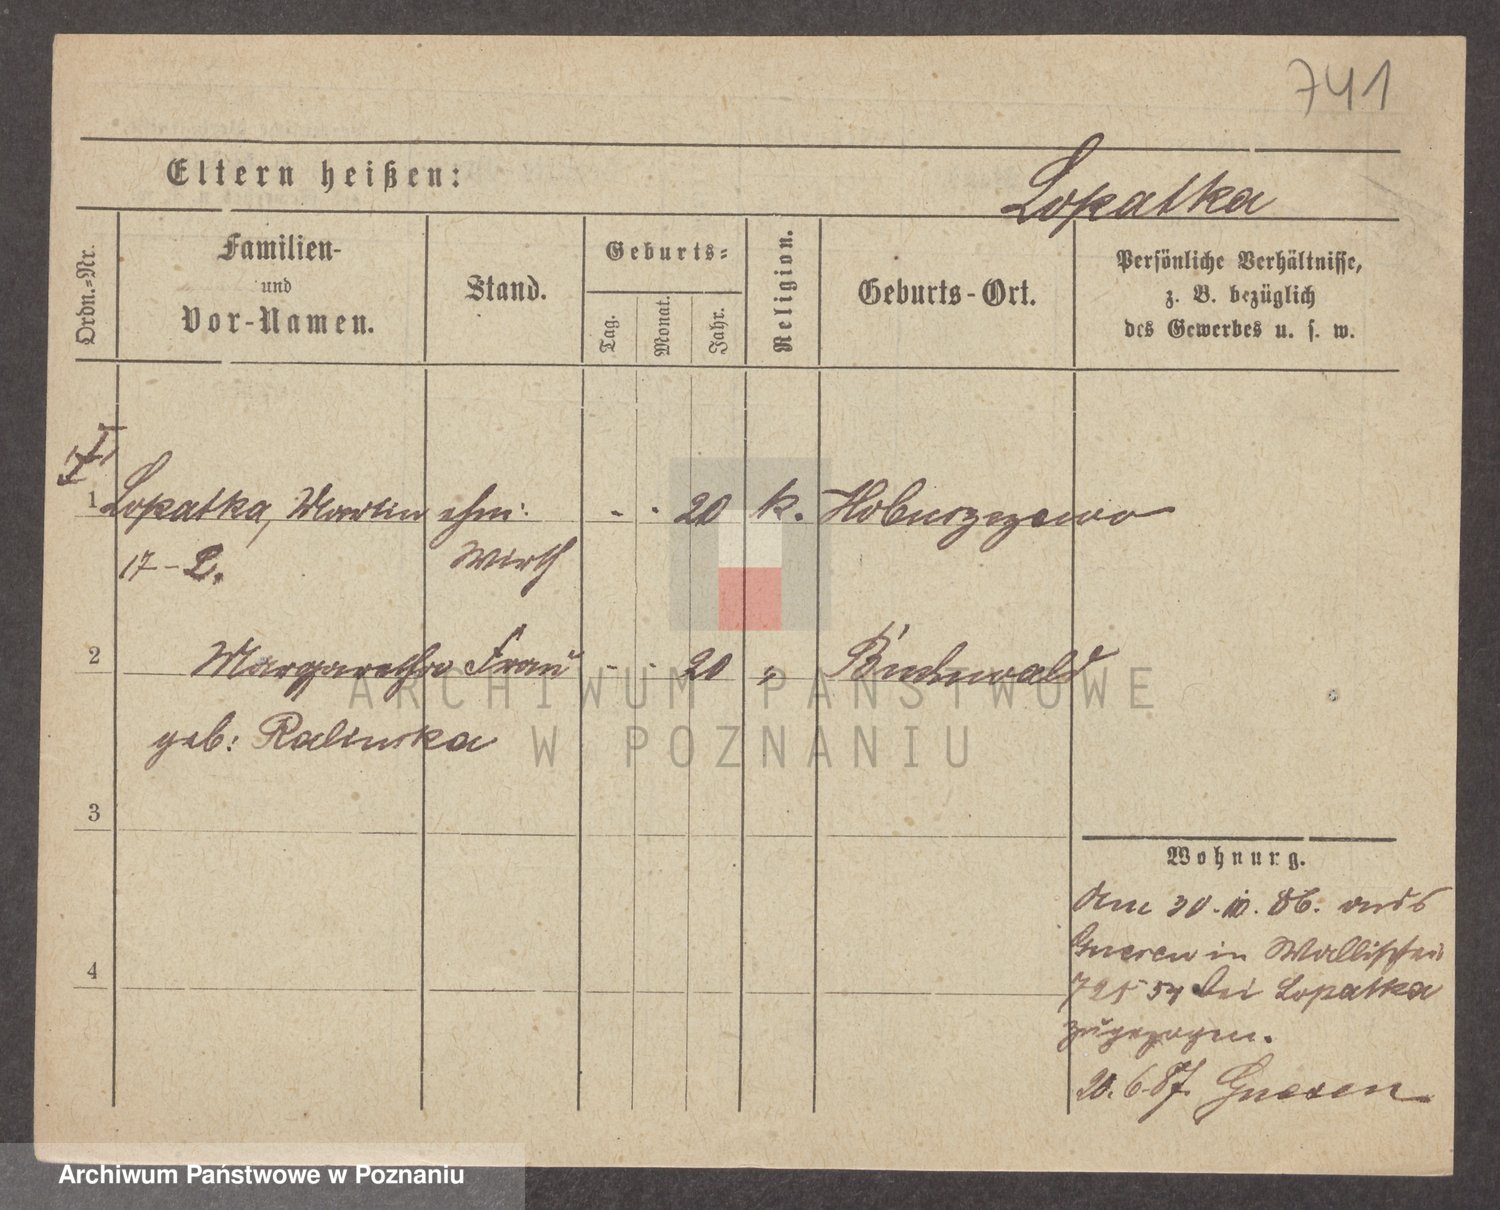 741
Eltern heißen:
Lopatka
Ordn.-Nr.
Familien-
und
Vor-Namen.
Stand.
Geburts-
Tag.
Monat.
Jahr.
Religion.
Geburts-Ort.
Persönliche Verhältnisse,
z. B. bezüglich
des Gewerbes u. s. w.
1 Lopatka, Martin ehm: - - 20 k.
17-L. Wirth
2 Margarethe Frau - - 20 " Buchwald
geb: Ralinska
3
Wohnung.
Am 30.10.86. aus
Gnesen in Wallischei
4
725 54 bei Lopatka
zugezogen.
20.6.87. Gnesen
ARCHIWUM PAŃSTWOWE
W POZNANIU
Archiwum Państwowe w Poznaniu